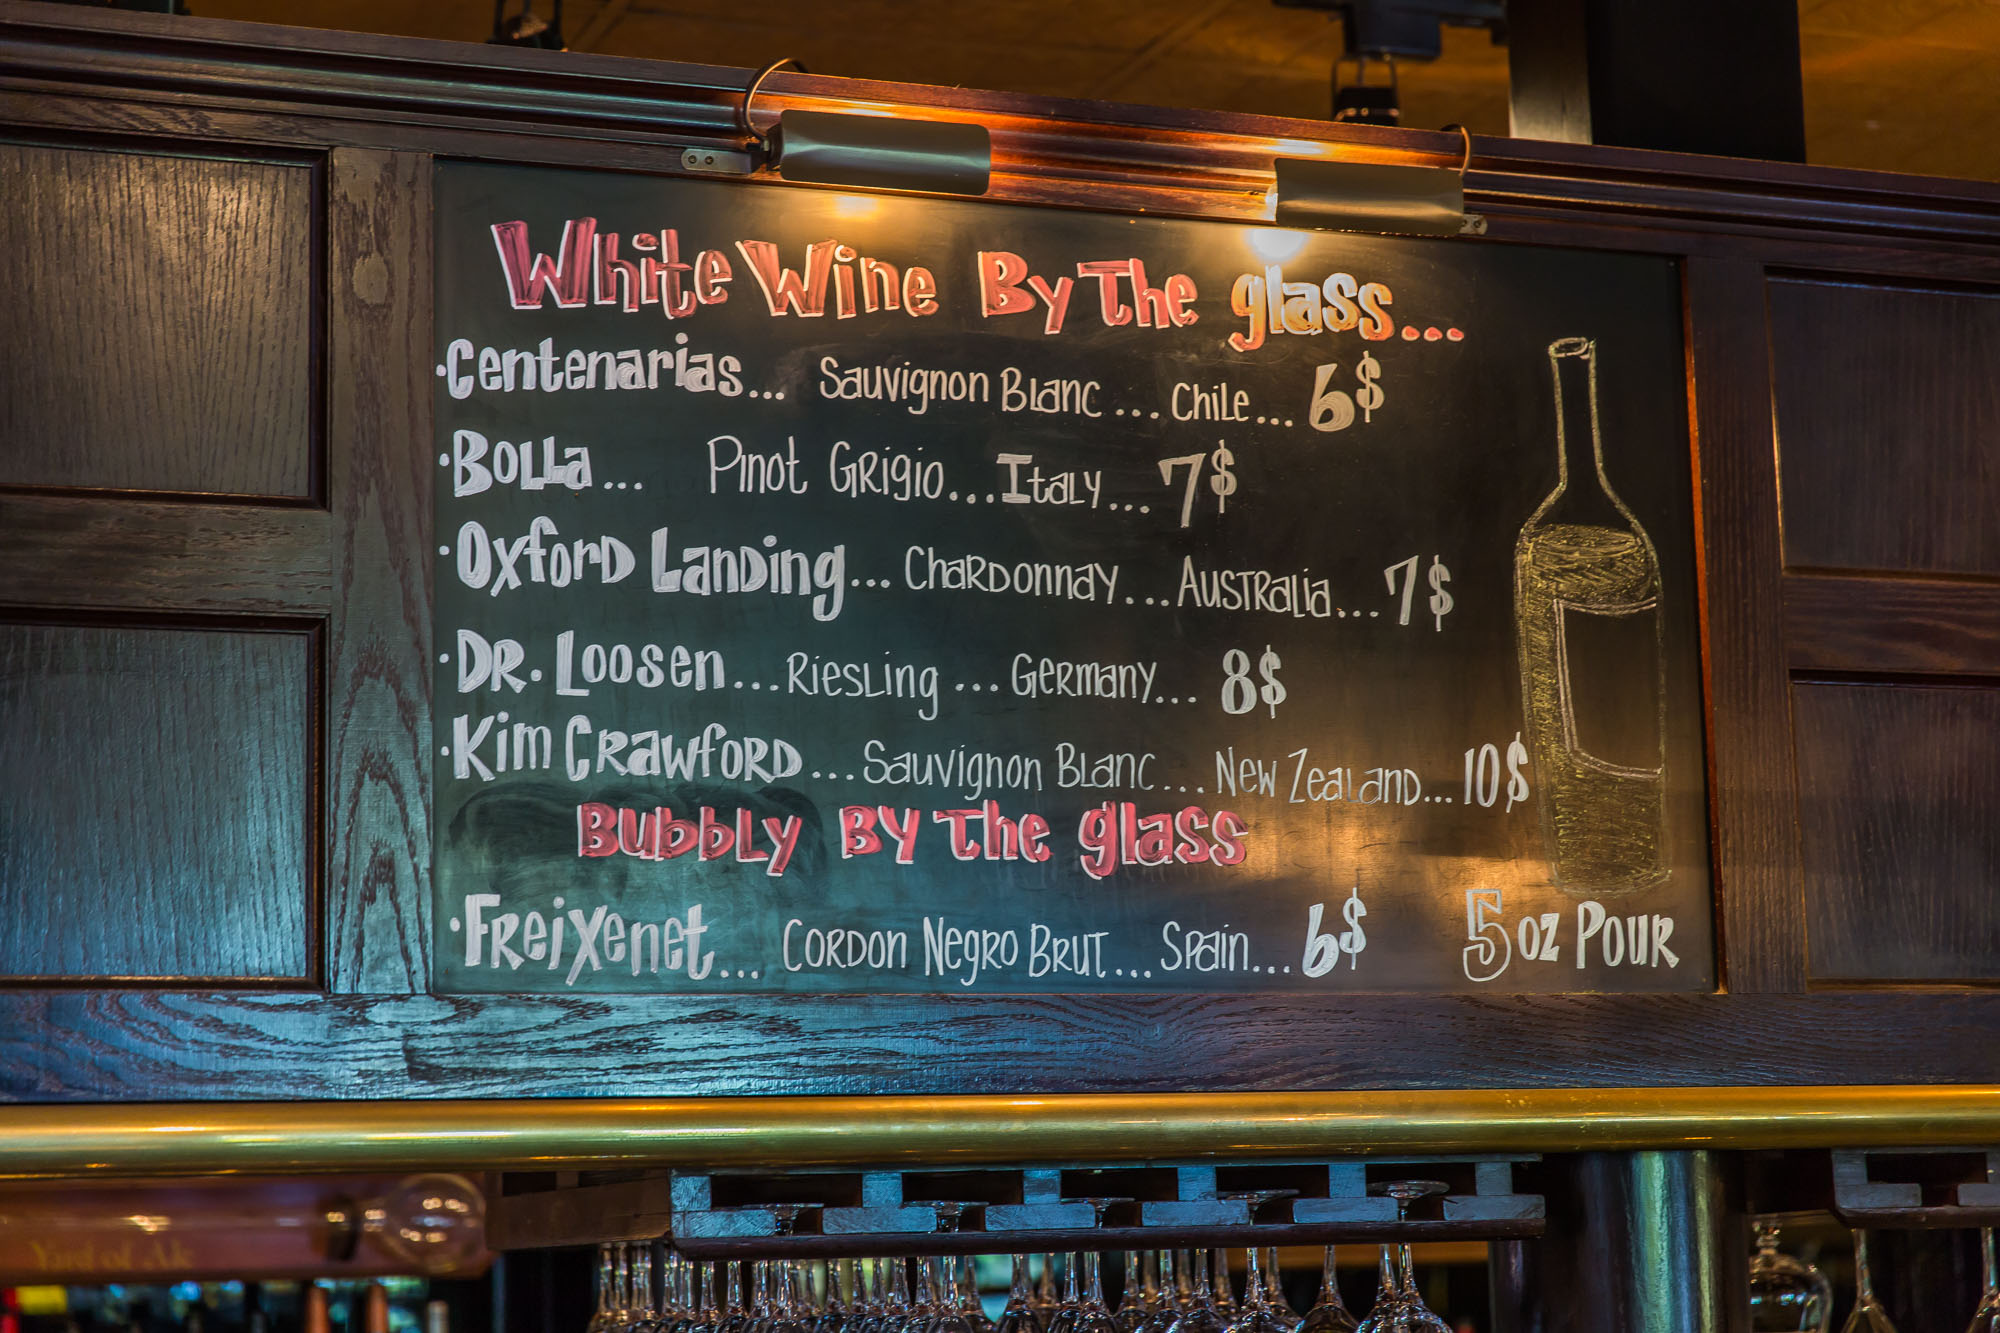 White Wine By The glass...
·Centenarias... Sauvignon Blanc ... Chile... 6$
·Bolla... Pinot Grigio... Italy... 7$
·Oxford Landing... Chardonnay... Australia... 7$
·Dr. Loosen... Riesling ... Germany... 8$
·Kim Crawford... Sauvignon Blanc... New Zealand... 10$
Bubbly By The glass
·Freixenet... Cordon Negro Brut... Spain... 6$
5 oz Pour
Yard of Ale